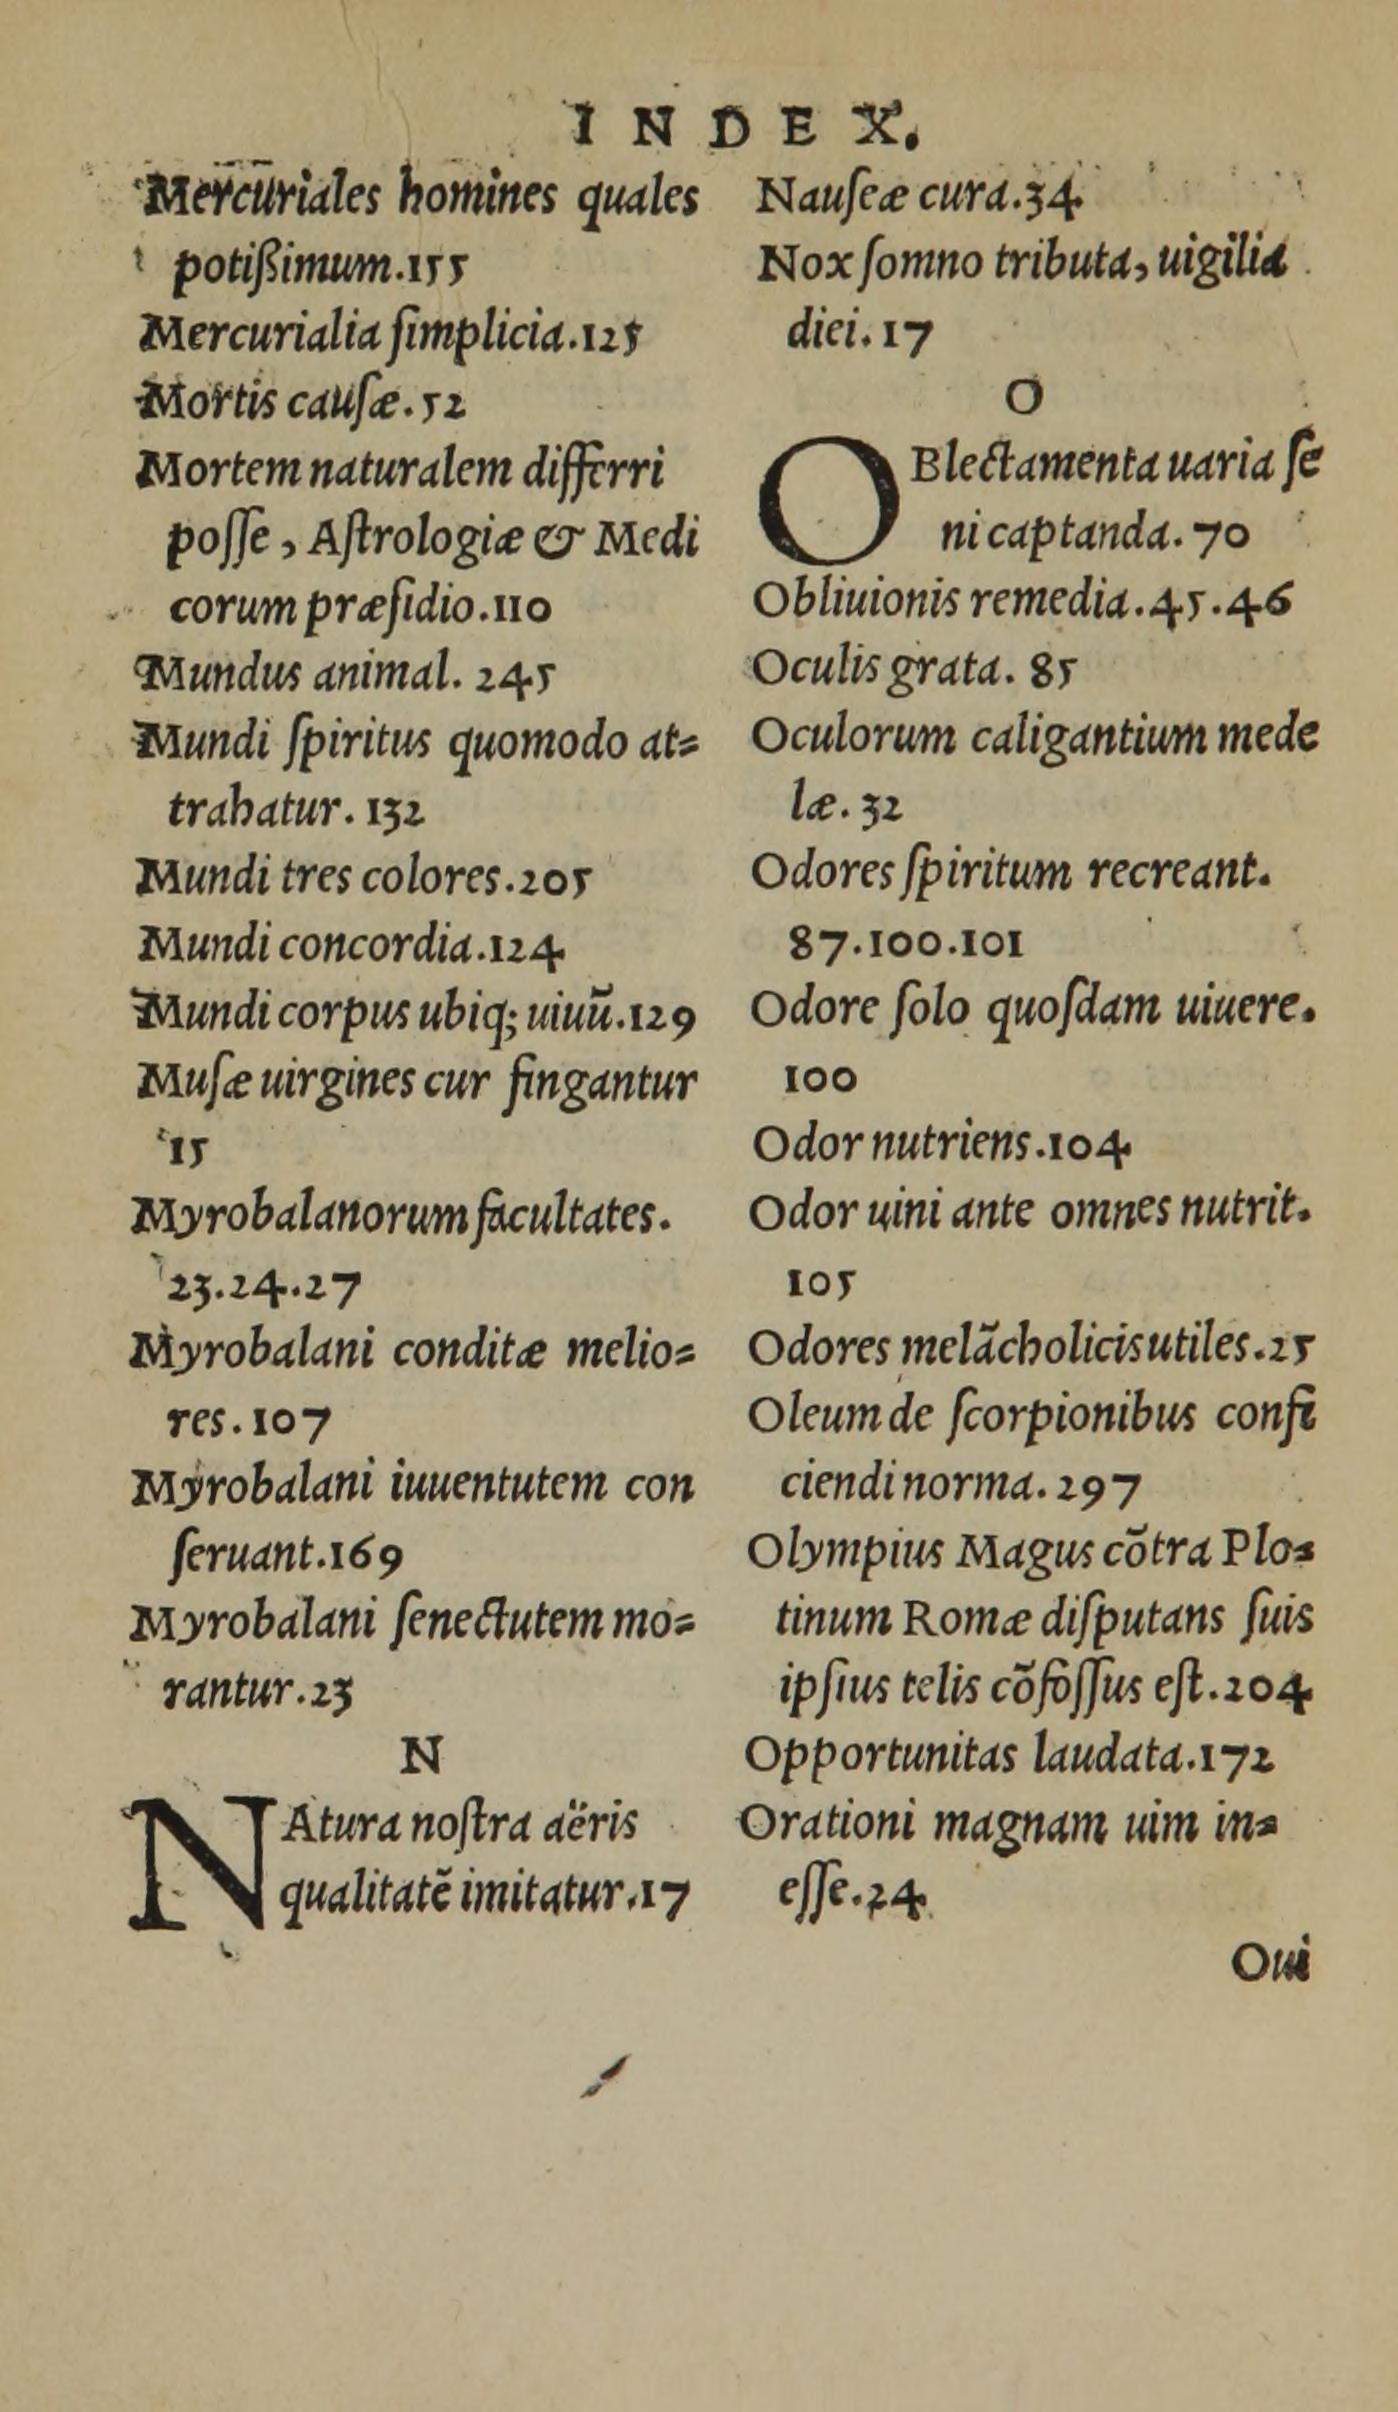 INDEX.
Mercuriales homines quales
potißimum.155
Mercurialia ſimplicia.125
Mortis cauſæ.52
Mortem naturalem differri
poſſe, Aſtrologiæ & Medi
corum præſidio.110
Mundus animal. 245
Mundi ſpiritus quomodo at=
trahatur. 132
Mundi tres colores.205
Mundi concordia.124
Mundi corpus ubiq; uiuū.129
Muſæ uirgines cur fingantur
15
Myrobalanorum facultates.
23.24.27
Myrobalani conditæ melio=
res.107
Myrobalani iuuentutem con
ſeruant.169
Myrobalani ſenectutem mo=
rantur.23
N
NAtura noſtra aëris
qualitatē imitatur.17
Nauſeæ cura.34
Nox ſomno tributa, uigilia
diei.17
O
OBlectamenta uaria ſe
ni captanda.70
Obliuionis remedia.45.46
Oculis grata. 85
Oculorum caligantium mede
læ.32
Odores ſpiritum recreant.
87.100.101
Odore ſolo quoſdam uiuere.
100
Odor nutriens.104
Odor uini ante omnes nutrit.
105
Odores melācholicis utiles.25
Oleum de ſcorpionibus confi
ciendi norma.297
Olympius Magus cōtra Plo=
tinum Romæ diſputans ſuis
ipſius telis cōfoſſus eſt.204
Opportunitas laudata.172
Orationi magnam uim in=
eſſe.24
Oui